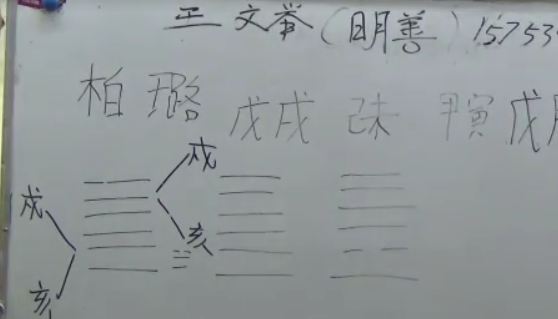 王文举（明善）15753
柏璐 戊戌 己未 甲寅 戊
戌
戌 亥
亥